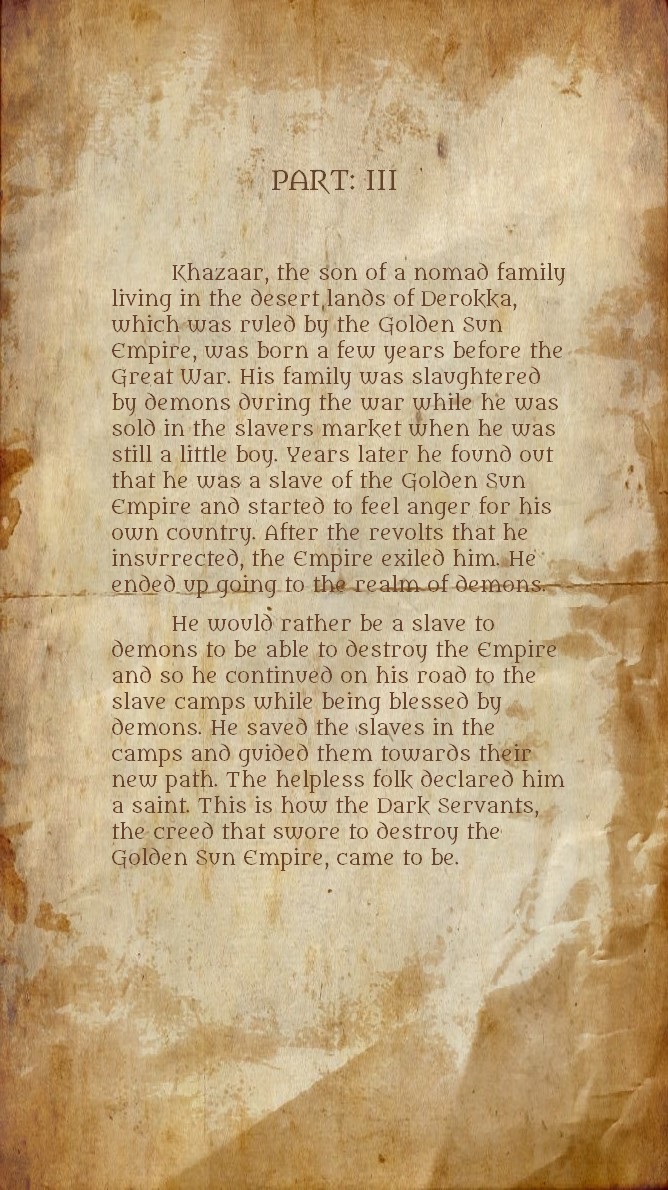 PART: III
Khazaar, the son of a nomad family
living in the desert lands of Derokka,
which was ruled by the Golden Sun
Empire, was born a few years before the
Great War. His family was slaughtered
by demons during the war while he was
sold in the slavers market when he was
still a little boy. Years later he found out
that he was a slave of the Golden Sun
Empire and started to feel anger for his
own country. After the revolts that he
insurrected, the Empire exiled him. He
ended up going to the realm of demons.
He would rather be a slave to
demons to be able to destroy the Empire
and so he continued on his road to the
slave camps while being blessed by
demons. He saved the slaves in the
camps and guided them towards their
new path. The helpless folk declared him
a saint. This is how the Dark Servants,
the creed that swore to destroy the
Golden Sun Empire, came to be.